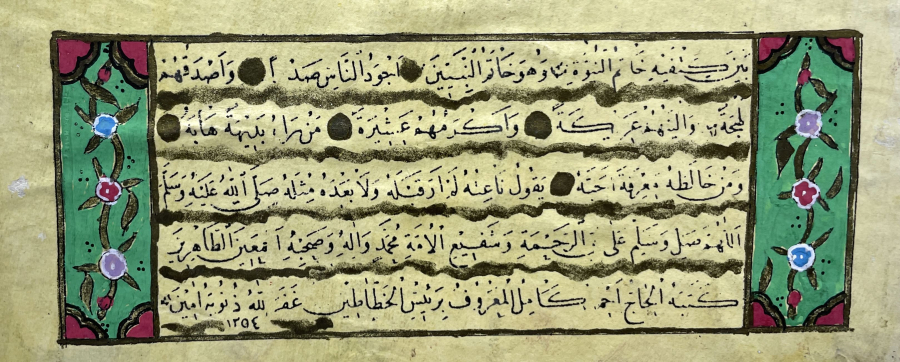 بين كتفيه خاتم النبوة وهو خاتم النبيين اجود الناس صدرا واصدقهم
لهجة والينهم عريكة واكرمهم عشيرة من راه بديهة هابه
ومن خالطه معرفة احبه يقول ناعته لم ار قبله ولا بعده مثله صلى الله عليه وسلم
اللهم صل وسلم على نبي الرحمة وشفيع الامة محمد واله وصحبه اجمعين الطاهرين
كتبه الحاج احمد كامل المعروف برئيس الخطاطين غفر الله ذنوبه امين
١٣٥٤